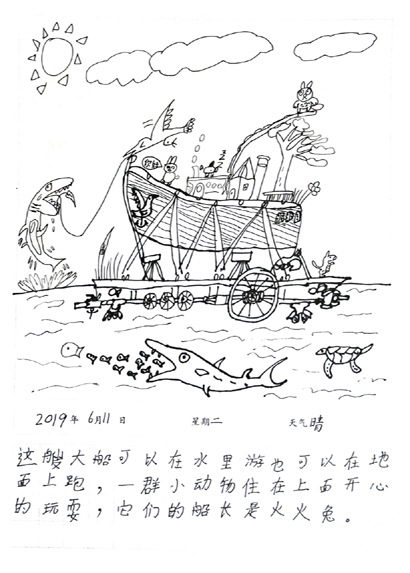 2019年 6月11日 星期二 天气晴
这艘大船可以在水里游也可以在地
面上跑，一群小动物住在上面开心
的玩耍，它们的船长是火火兔。